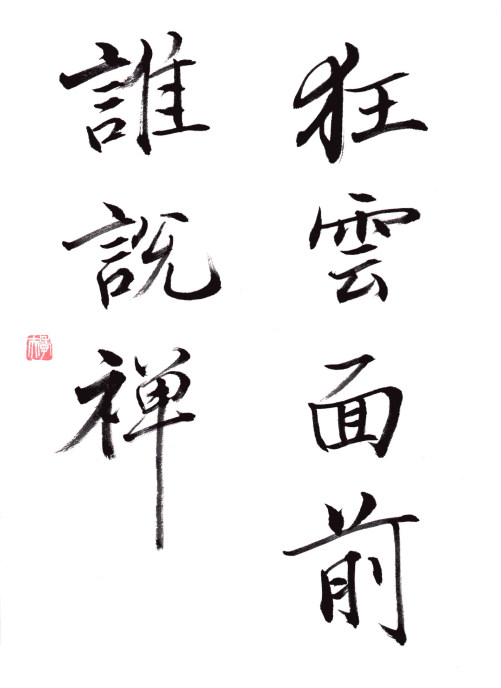 狂雲面前
誰説禅